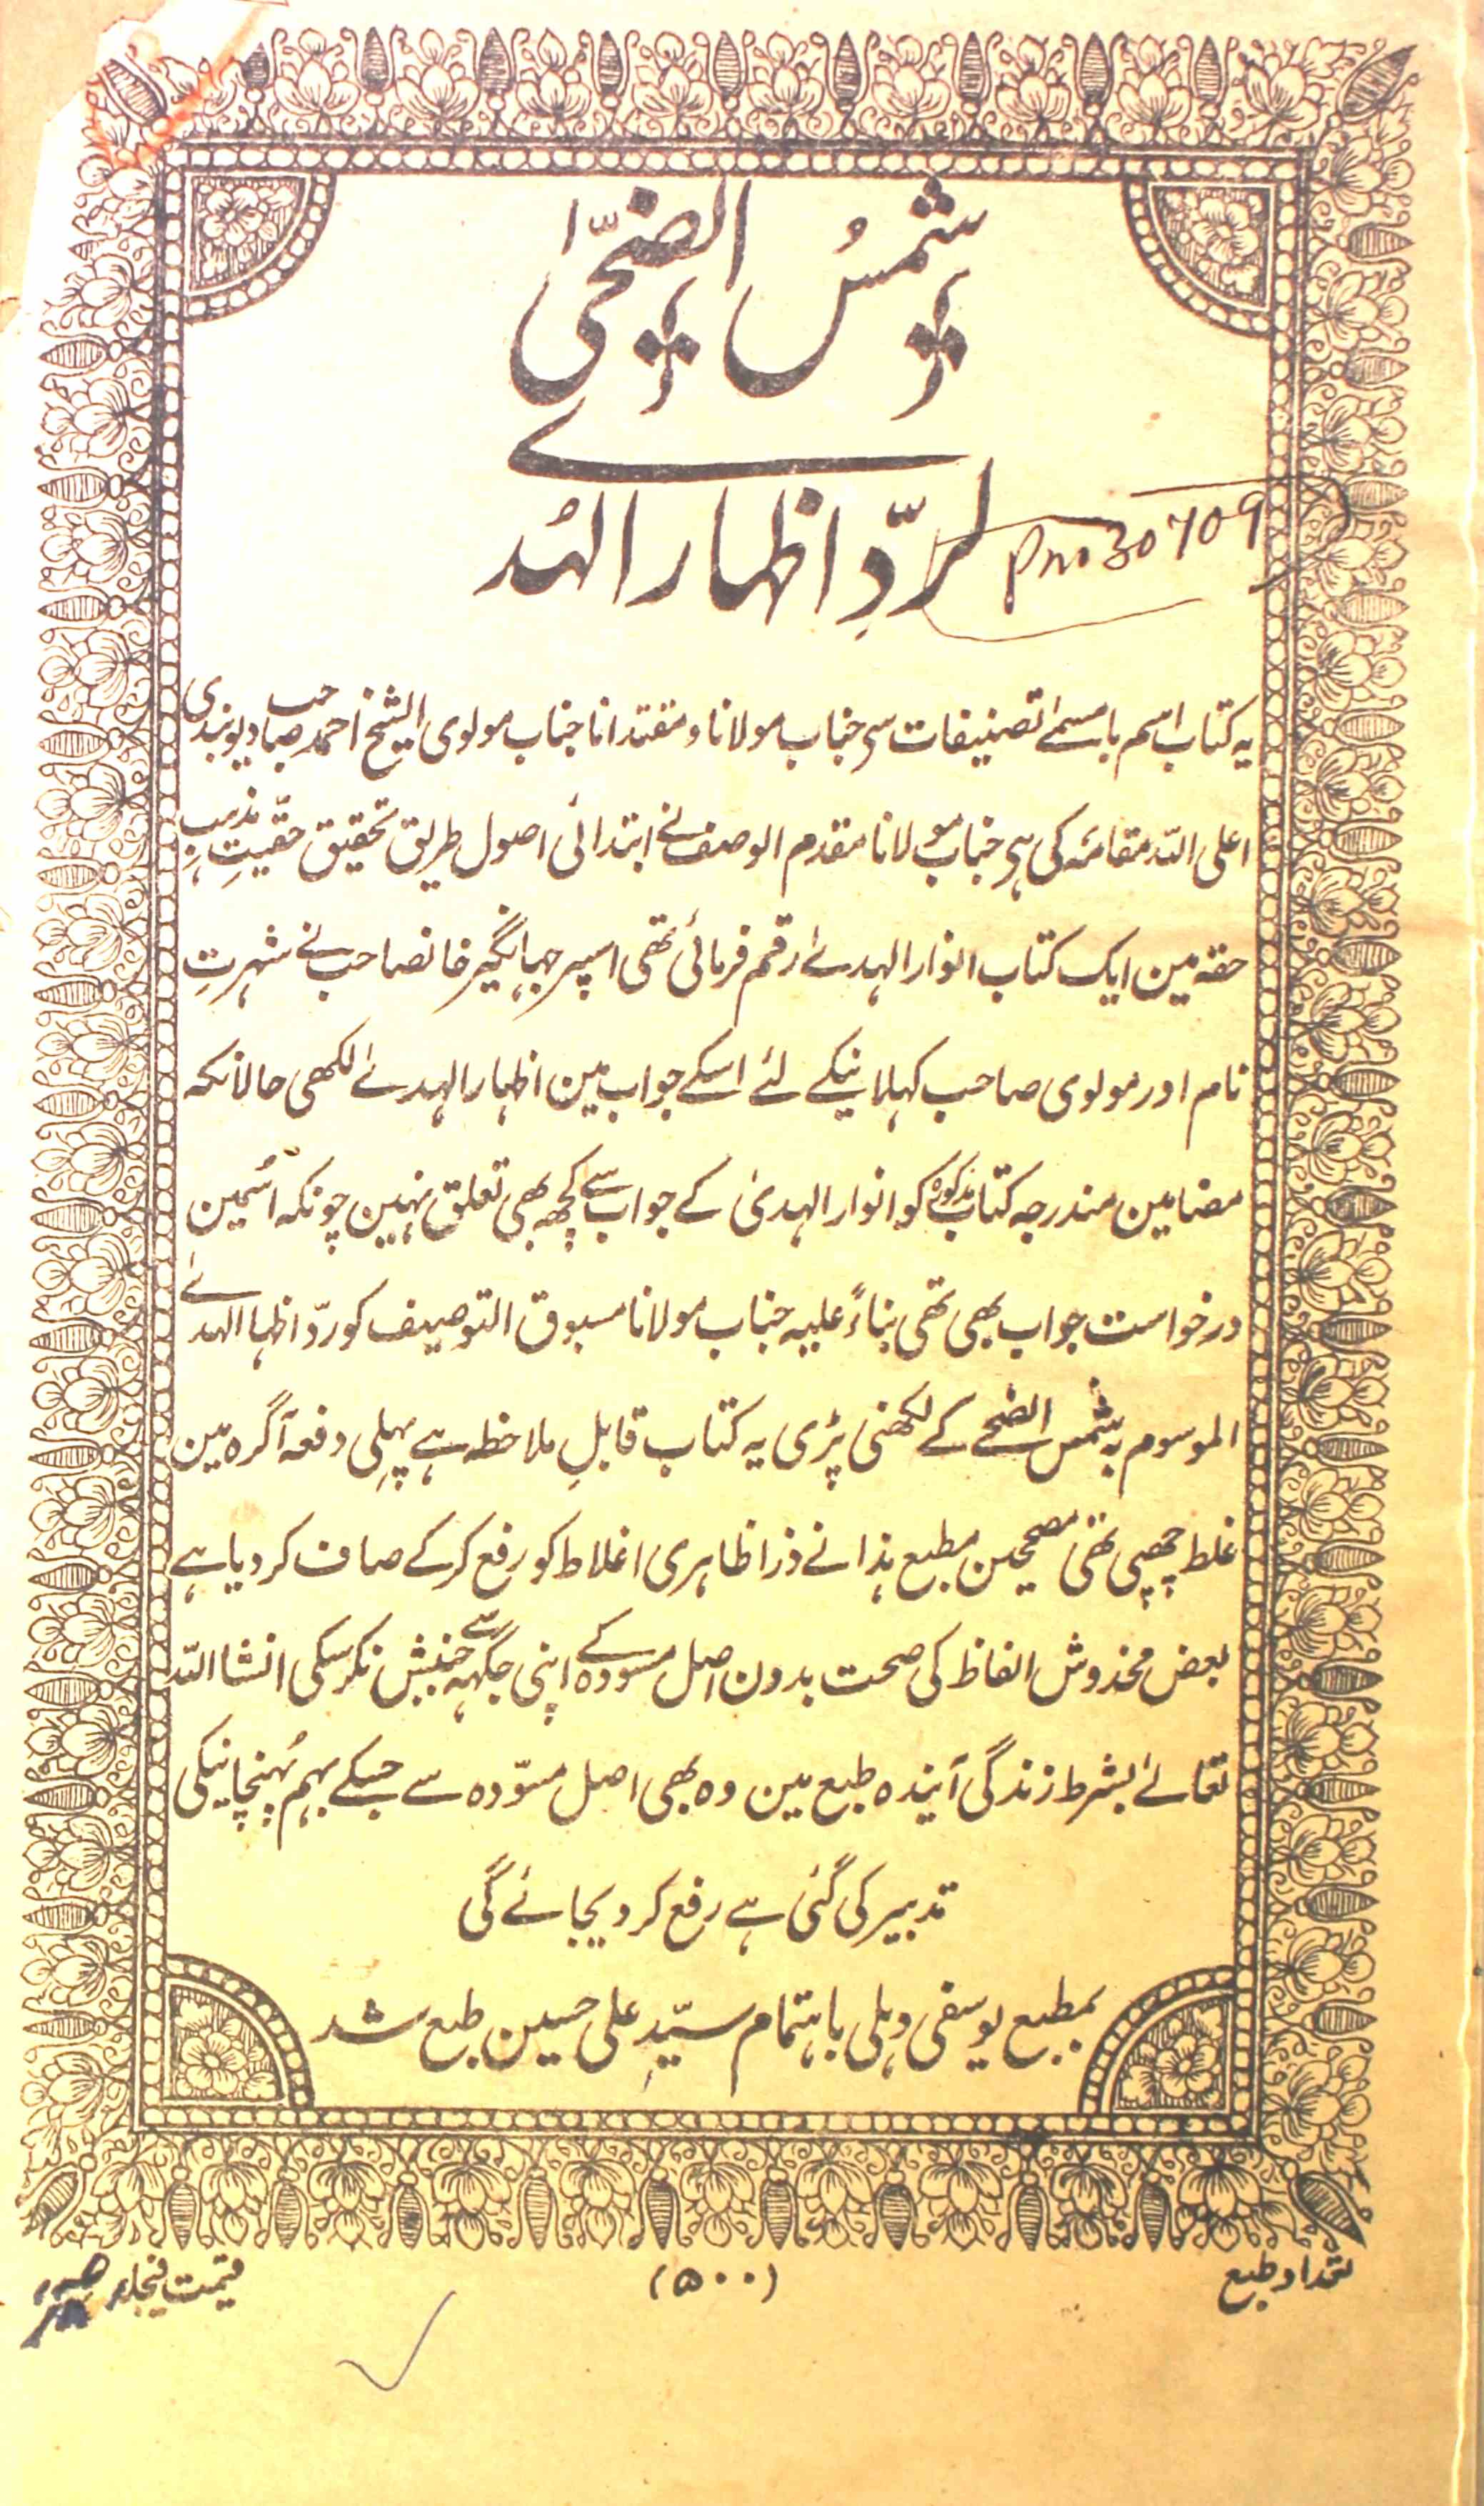 شمسُ الضّحیٰ
لردِّ اظہار الہُدے
Pno 30709
یہ کتاب اسم بامسمےٰ تصنیفات سے جناب مولانا و مقتدانا جناب مولوی الشیخ احمد صاحب دیوبندی
اعلی اللہ مقامہٗ کی ہے جناب مولانا مقدم الوصف نے ابتدائی اصول طریق تحقیق حقیّتِ مذہبِ
حقہ مین ایک کتاب انوار الہدےٰ رقم فرمائی تھی اسپر جہانگیر خانصاحب نے شہرتِ
نام اور مولوی صاحب کہلانیکے لئے اسکے جواب مین اظہار الہدےٰ لکھی حالانکہ
مضامین مندرجہ کتاب مذکورہ کو انوار الہدیٰ کے جواب سے کچھ بھی تعلق نہین چونکہ اسُمین
درخواست جواب بھی تھی بناءً علیہ جناب مولانا مسبوق التوصیف کو ردّ اظہا الہدےٰ
الموسوم بہ شمس الضحےٰ کے لکھنی پڑی یہ کتاب قابلِ ملاحظہ ہے پہلی دفعہ آگرہ مین
غلط چھپی تھی مصححین مطبع ہذا نے ذرا ظاہری اغلاط کو رفع کرکے صاف کر دیا ہے
بعض مخدوش الفاظ کی صحت بدون اصل مسودہ کے اپنی جگہہ سے جنبش نکرسکی انشا اللہ
تعالےٰ بشرط زندگی آیندہ طبع مین وہ بھی اصل مسوّدہ سے جسکے بہم پُہنچانیکی
تدبیر کی گئی ہے رفع کر دیجائے گی
بمطبع یوسفی دہلی باہتمام سیّد علی حسین طبع شد
تعداد طبع
(۵۰۰)
قیمت فیجلد